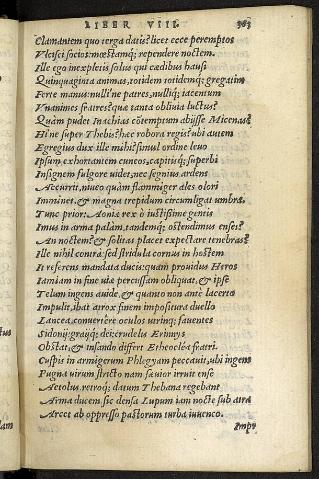 LIBER VIII. 363
Clamantem quo terga datis? licet ecce peremptos
Vlcisci socios: mœstamq; rependere noctem.
Ille ego inexpletis solus qui cædibus hausi
Quinquaginta animas, totidem totidemq; gregatim
Ferte manus: nulli'ne patres, nulliq; iacentum
Vnanimes fratres? quæ tanta obliuia luctus?
Quàm pudet Inachias cõtemptum abijsse Micenas?
Hi'ne super Thebis? hæc robora regis? ubi autem
Egregius dux ille mihi? simul ordine leuo
Ipsum exhortantem cuneos, capitisq; superbi
Insignem fulgore uidet, nec segnius ardens
Accurrit, niueo quàm flammiger ales olori
Imminet, & magna trepidum circumligat umbra.
Tunc prior: Aonix rex ò iustissime gentis
Imus in arma palàm, tandemq; ostendimus enses?
An noctem? & solitas placet expectare tenebras?
Ille nihil contrà: sed stridula cornus in hostem
It referens mandata ducis: quam prouidus Heros
Iamiam in fine uiæ percussam obliquat, & ipse
Telum ingens auide, & quanto non antè lacerto
Impulit, ibat atrox finem impositura duello
Lancea, conuertêre oculos utrinq; fauentes
Sidonij graijq; dei: crudelis Erinnys
Obstat, & infando differt Etheocléa fratri.
Cuspis in armigerum Phlegyam peccauit, ubi ingens
Pugna uirum: stricto nam sæuior irruit ense
Aetolus, retroq; datum Thebana regebant
Arma ducem. sic densa Lupum iam nocte sub atra
Arcet ab oppresso pastorum turba iuuenco.
Impr